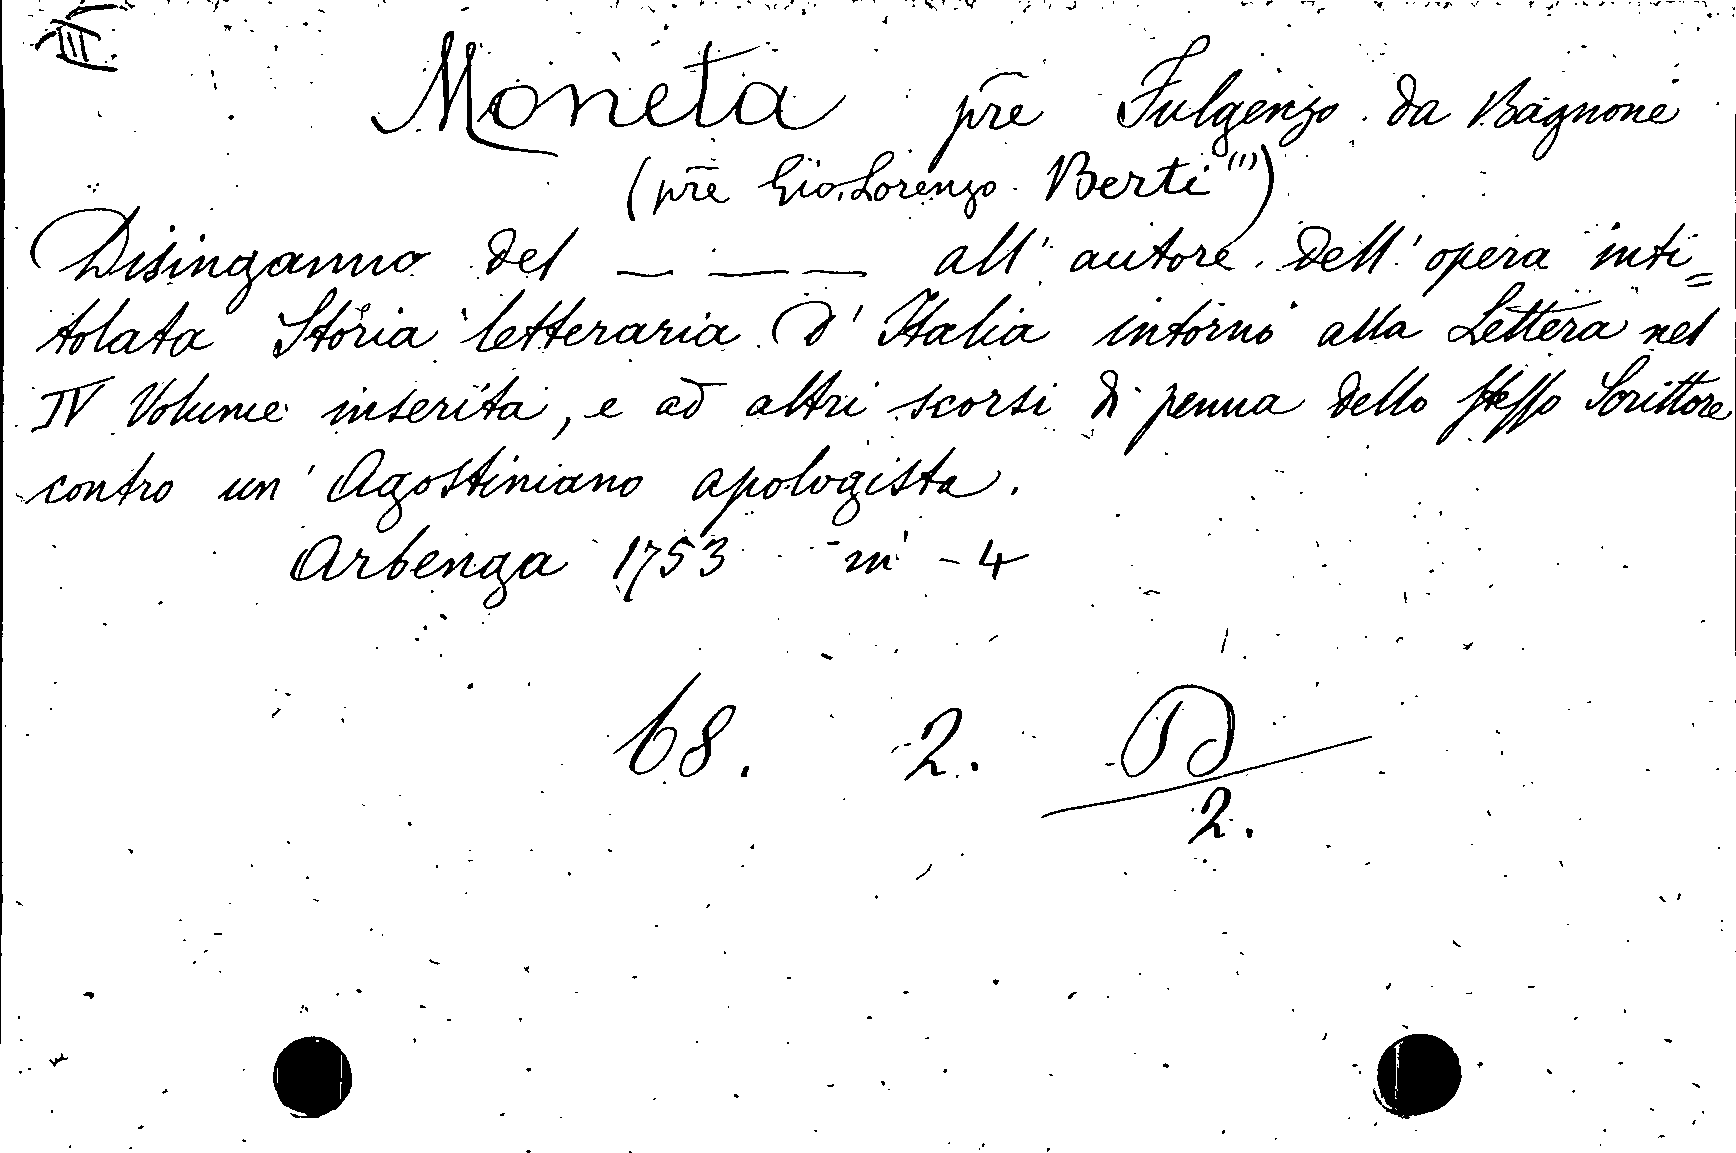 III
Moneta p̄re Fulgenzo da Bagnone
(p̄re Gio. Lorenzo Berti (1))
Disinganno del _ _ _ all' autore dell' opera inti=
tolata Storia letteraria d' Italia intorno alla Lettera nel
IV Volume inserita, e ad altri scorsi di penna dello stesso Scrittore
contro un' Agostiniano apologista.
Arbenga 1753 in - 4
68. 2.
2.